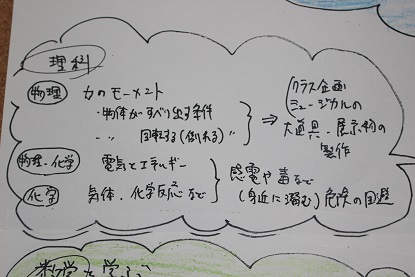 理科
物理 力のモーメント
・物体がすべり出す条件
〃 回転する(倒れる) 〃
⇒ クラス企画
ミュージカルの
大道具・展示物の
製作
物理・化学 電気とエネルギー
化学 気体、化学反応など
感電や毒など
(身近に潜む) 危険の回避
数学を学ぶ